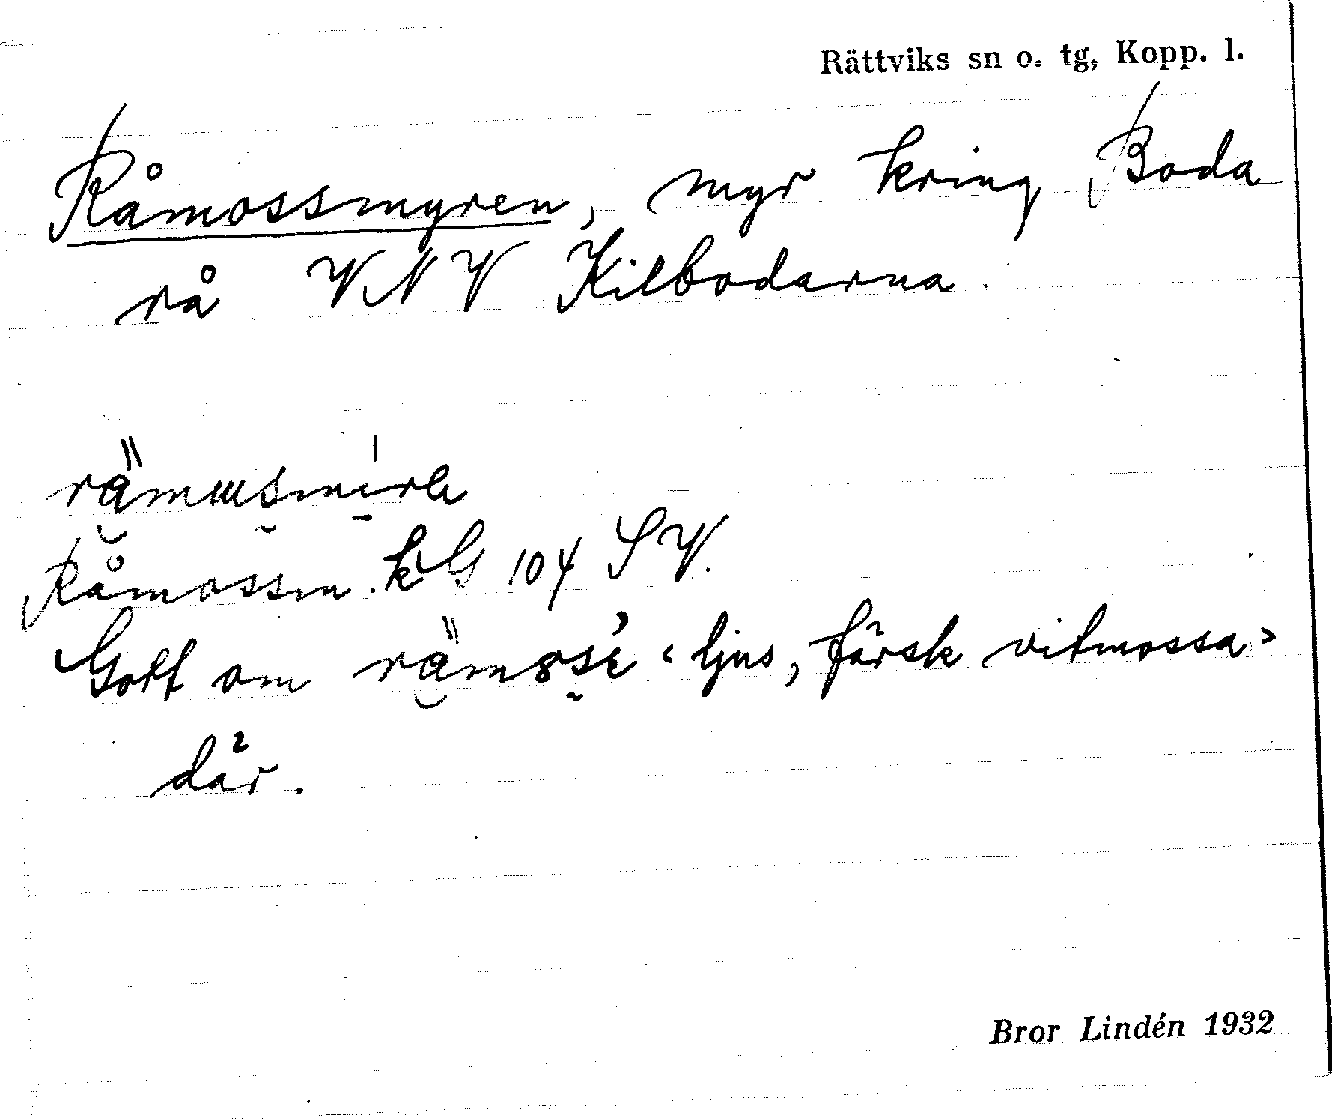 Rättviks sn o. tg, Kopp. l.
Råmossmyren, myr kring Boda
rå VNV Kilbodarna.
Råmossm. kG 104 SV.
Gott om ‹ljus, färsk vitmossa›
där.
Bror Lindén 1932